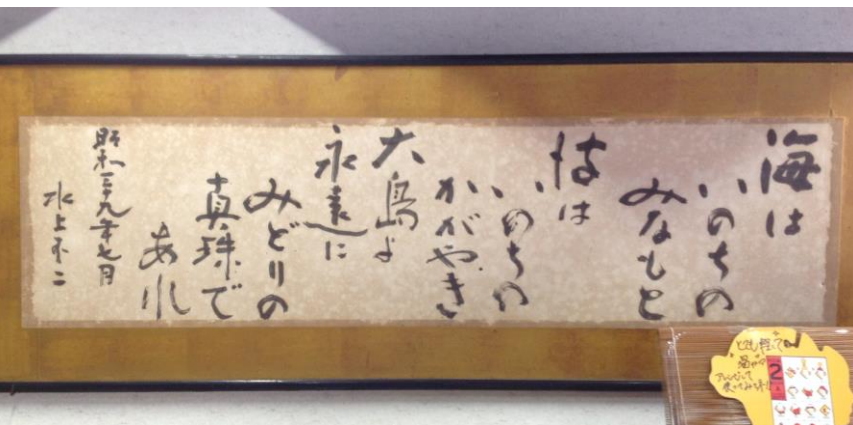 海は
いのちの
みなもと
波は
いのちの
かがやき
大島よ
永遠に
みどりの
真珠で
あれ
昭和三十九年七月
水上不二
アレンジして
2